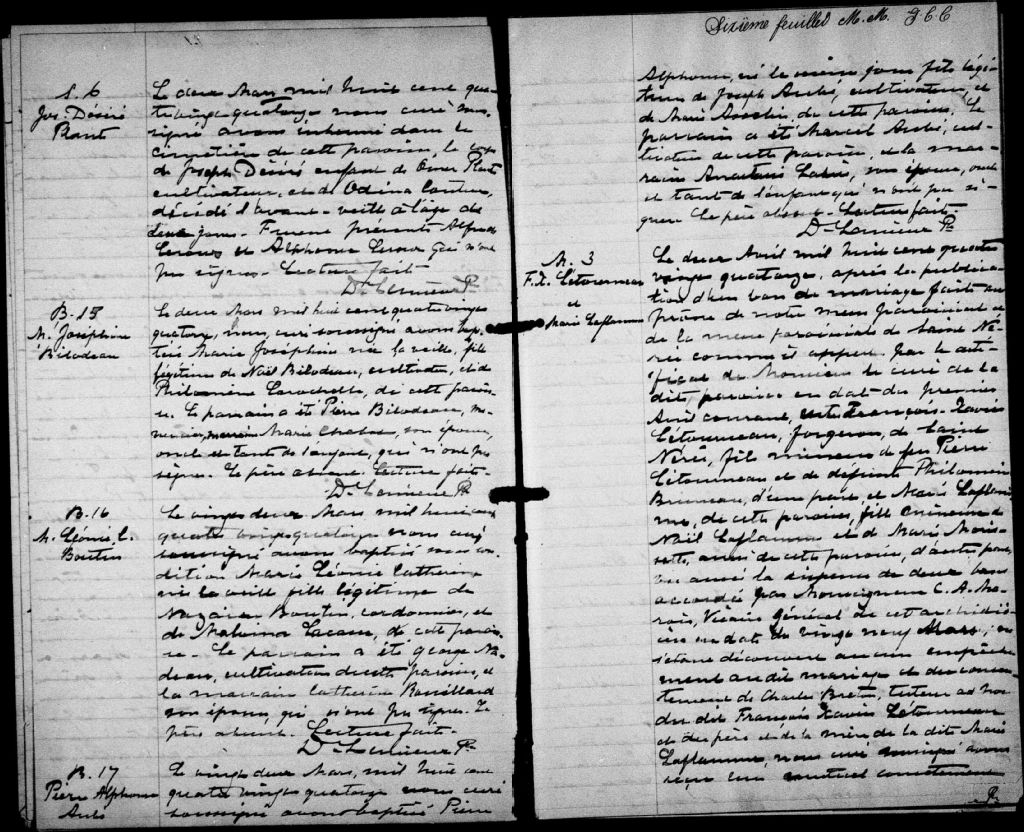 S. 6
Jos. Désiré
Plante
Le deux Mars mil huit cent qua-
trevingt quatorze nous curé sous-
signé avons inhumé dans le
cimetière de cette paroisse, le corps
de Joseph Désiré enfant de Omer Plante
cultivateur, et de Odina Couture,
décédé l'avant-veille à l'âge de
deux jours. Furent présents Alfred
Leroux et Alphonse Leroux qui n'ont
pu signer. Lecture fait.
D. Lemieux Ptr
B. 15
M. Joséphine
Bilodeau
Le deux Mars mil huit cent quatrevingt
quatorze, nous, curé soussigné avons bap-
tisé Marie Joséphine née la veille, fille
légitime de Noël Bilodeau, cultivateur, et de
Philomène Larochelle, de cette parois-
se. Le parrain a été Pierre Bilodeau,
marraine Marie Chabot, son épouse,
oncle et tante de l'enfant, qui n'ont pu
signer. Le père absent. Lecture fait.
D. Lemieux Ptr
B. 16
M. Léonie C.
Boutin
Le vingt deux Mars mil huit cent
quatre vingt quatorze nous curé
soussigné avons baptisé sous con-
dition Marie Léonie Catherine
née la veille fille légitime de
Nazaire Boutin, cordonnier, et
de Malvina Lacasse, de cette parois-
se. Le parrain a été George Na-
deau, cultivateur de cette paroisse, et
la marraine Catherine Rouillard
son épouse, qui n'ont pu signer. Le
père absent. Lecture fait.
D. Lemieux Ptr
B. 17
Pierre Alphonse
Aubé
Le vingt deux Mars, mil huit cent
quatre vingt quatorze nous curé
soussigné avons baptisé Pierre
Sixième feuillet M. M. J C C
Alphonse, né le même jour fils légi-
time de Joseph Aubé, cultivateur, et
de Marie Gosselin, de cette paroisse. Le
parrain a été Marcel Aubé, cul-
tivateur de cette paroisse, et la mar-
raine Anastasie son épouse, oncle
et tante de l'enfant qui n'ont pu si-
gner. Le père absent. Lecture fait.
D. Lemieux Ptr
M. 3
F. X. Létourneau
et
Marie Laflamme
Le deux Avril mil huit cent quatre
vingt quatorze, après la publica-
tion d'un ban de mariage fait au
prône de notre messe paroissiale et
de la messe paroissiale de Saint Né-
rée comme il appert par le certi-
ficat de Monsieur le curé de la
dite paroisse en date du premier
Avril courant, entre François-Xavier
Létourneau, forgeron, de Saint
Nérée, fils mineur de feu Pierre
Létourneau et de défunte Philomène
Bruneau, d'une part, et Marie Laflam-
me, de cette paroisse, fille mineure de
Noël Laflamme et de Marie Moris-
sette, aussi de cette paroisse, d'autre part,
vu aussi la dispense de deux bans
accordée par Monseigneur C. A. Ma-
rois, Vicaire Général de cet archidio-
cèse en date du vingt neuf Mars, ne
s'étant découvert aucun empêche-
ment au dit mariage et du consen-
tement de Charles Breton, tuteur ad hoc
du dit François Xavier Létourneau
et du père et de la mère de la dite Marie
Laflamme, nous curé soussigné avons
reçu leur mutuel consentement